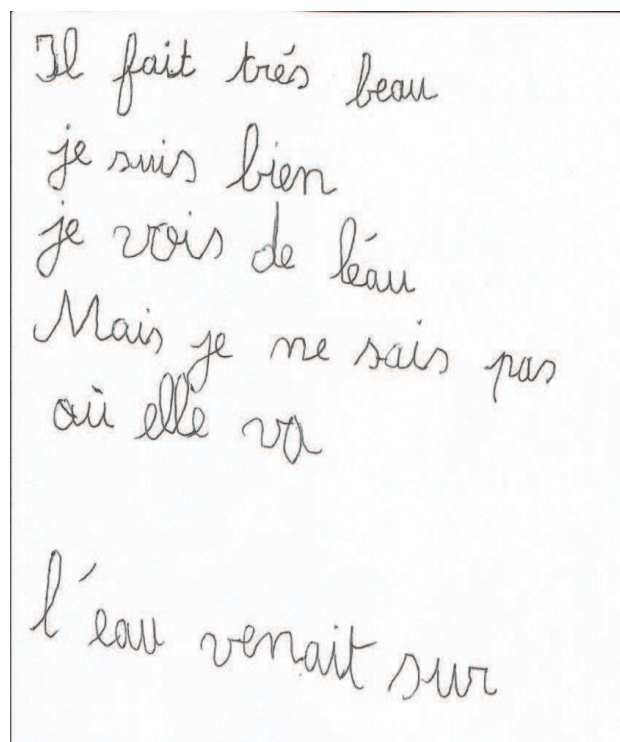 Il fait trés beau
je suis bien
je vois de léau
Mais je ne sais pas
où elle va
l'eau venait sur